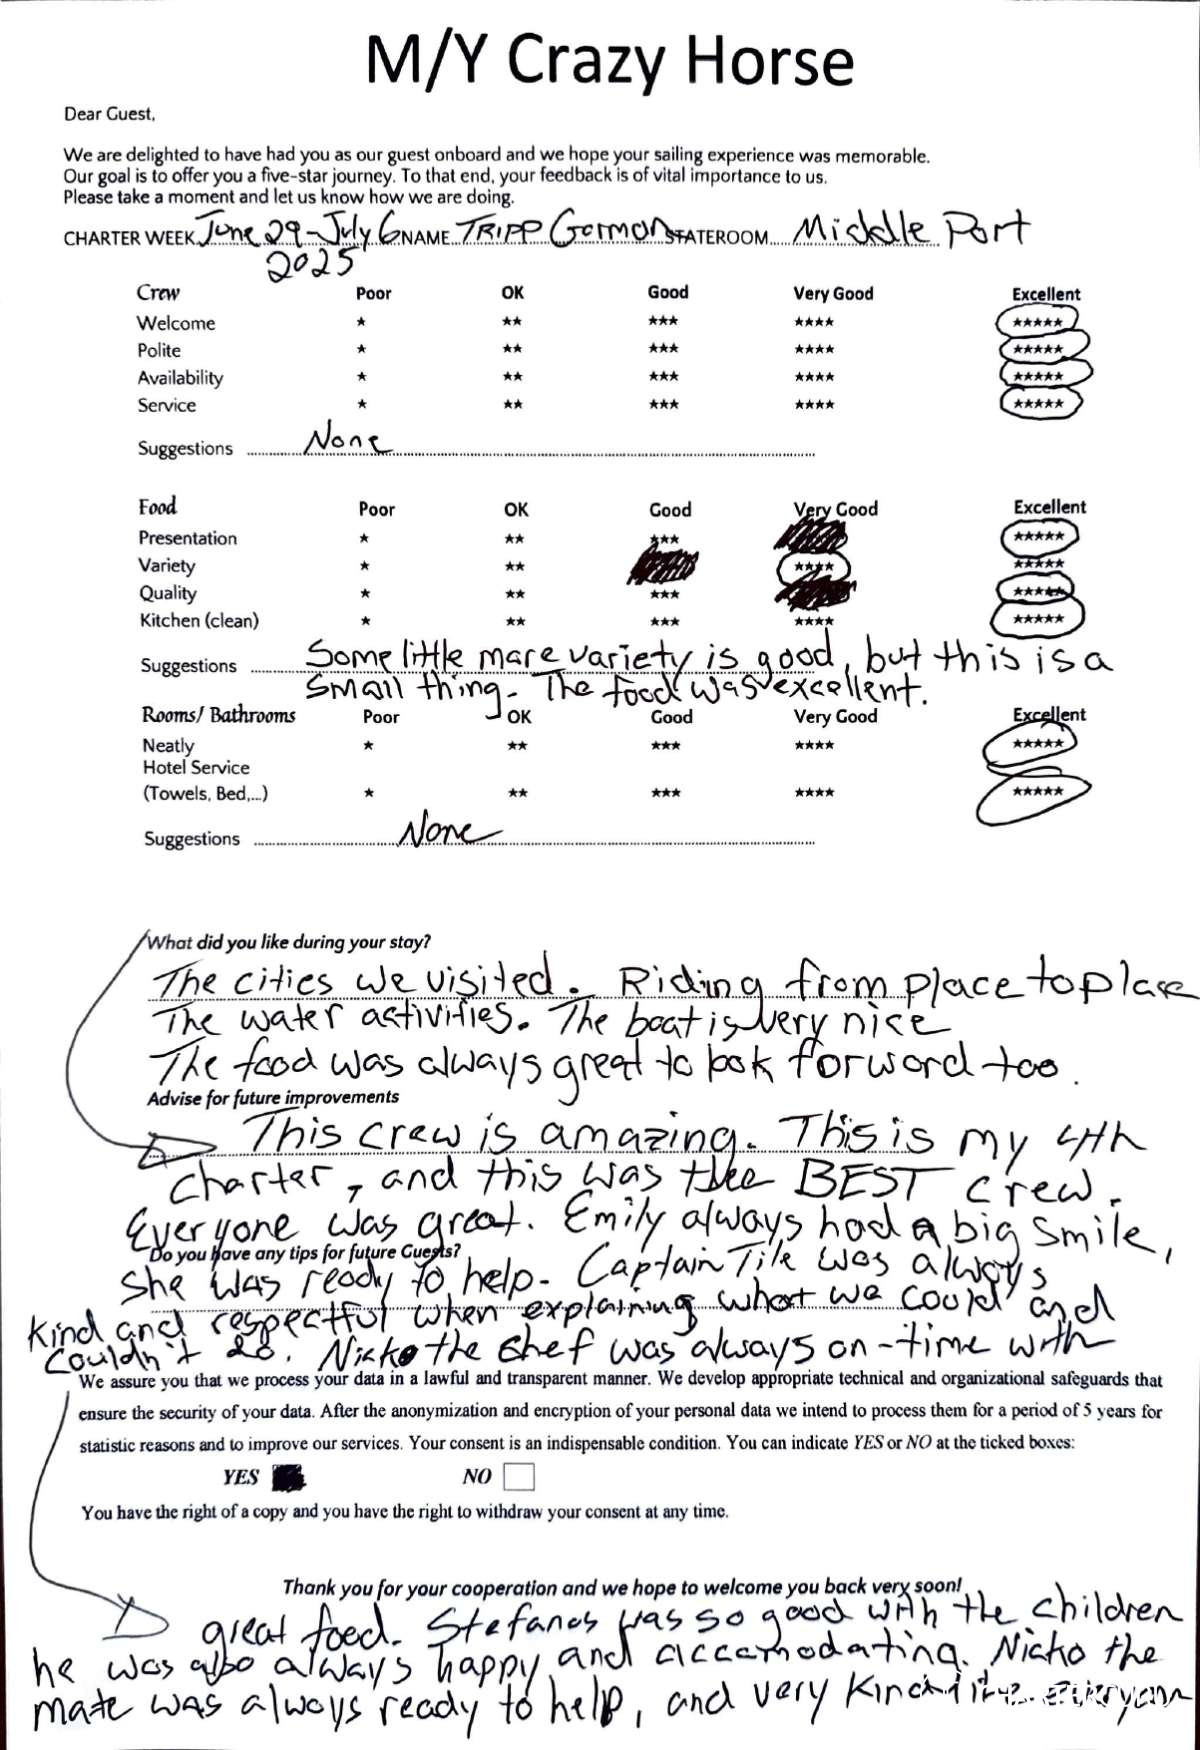 M/Y Crazy Horse
Dear Guest,
We are delighted to have had you as our guest onboard and we hope your sailing experience was memorable.
Our goal is to offer you a five-star journey. To that end, your feedback is of vital importance to us.
Please take a moment and let us know how we are doing.
CHARTER WEEK June 29-July 6 NAME TRIPP Gorman STATEROOM Middle Port
2025
Crew Poor OK Good Very Good Excellent
Welcome ★ ★★ ★★★ ★★★★ ★★★★★
Polite ★ ★★ ★★★ ★★★★ ★★★★★
Availability ★ ★★ ★★★ ★★★★ ★★★★★
Service ★ ★★ ★★★ ★★★★ ★★★★★
Suggestions None
Food Poor OK Good Very Good Excellent
Presentation ★ ★★ ★★★ ★★★★★
Variety ★ ★★ ★★★★ ★★★★★
Quality ★ ★★ ★★★ ★★★★★
Kitchen (clean) ★ ★★ ★★★ ★★★★ ★★★★★
Suggestions Some little more variety is good, but this is a
small thing. The food was excellent.
Rooms/ Bathrooms Poor OK Good Very Good Excellent
Neatly ★ ★★ ★★★ ★★★★ ★★★★★
Hotel Service
(Towels, Bed,...) ★ ★★ ★★★ ★★★★ ★★★★★
Suggestions None
What did you like during your stay?
The cities we visited. Riding from place to place
The water activities. The boat is very nice
The food was always great to look forward too.
Advise for future improvements
This crew is amazing. This is my 4th
charter, and this was the BEST crew.
Everyone was great. Emily always had a big smile,
Do you have any tips for future Guests?
she was ready to help. Captain Tile was always
kind and respectful when explaining what we could and
couldn't do. Nicko the chef was always on-time with
We assure you that we process your data in a lawful and transparent manner. We develop appropriate technical and organizational safeguards that
ensure the security of your data. After the anonymization and encryption of your personal data we intend to process them for a period of 5 years for
statistic reasons and to improve our services. Your consent is an indispensable condition. You can indicate YES or NO at the ticked boxes:
YES NO
You have the right of a copy and you have the right to withdraw your consent at any time.
Thank you for your cooperation and we hope to welcome you back very soon!
great food. Stefanos was so good with the children
he was also always happy and accamodating. Nicko the
mate was always ready to help, and very kind